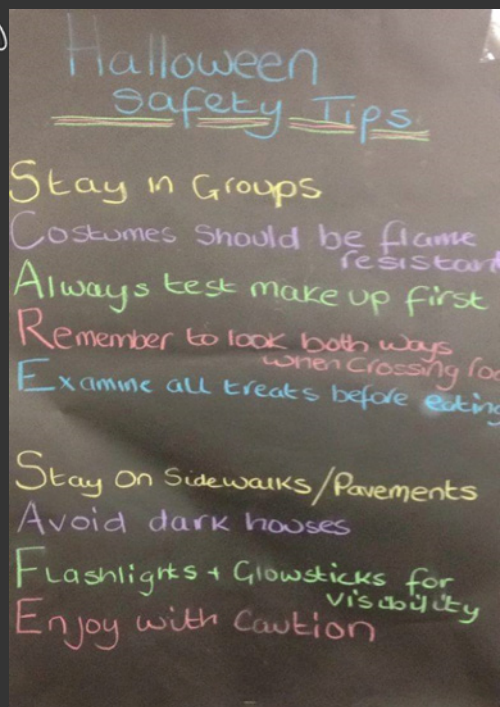 Halloween
Safety Tips
Stay in Groups
Costumes Should be flame
resistant
Always test make up first
Remember to look both ways
when crossing
Examine all treats before eating
Stay on Sidewalks/Pavements
Avoid dark houses
Flashlights + Glowsticks for
visibility
Enjoy with Caution